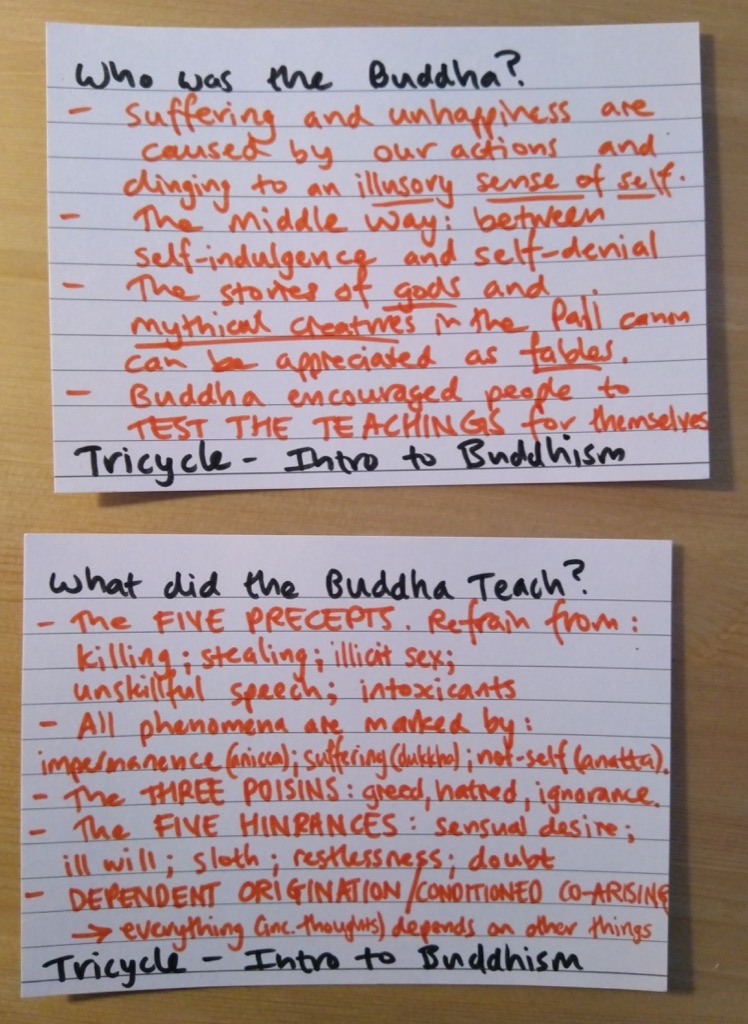 Who was the Buddha?
- Suffering and unhappiness are
caused by our actions and
clinging to an illusory sense of self.
- The Middle Way: between
self-indulgence and self-denial
- The stories of gods and
mythical creatures in the Pali canon
can be appreciated as fables.
- Buddha encouraged people to
TEST THE TEACHINGS for themselves
Tricycle - Intro to Buddhism
What did the Buddha Teach?
- The FIVE PRECEPTS. Refrain from:
killing; stealing; illicit sex;
unskillful speech; intoxicants
- All phenomena are marked by:
impermanence (anicca); suffering (dukkha); not-self (anatta).
- The THREE POISINS: greed, hatred, ignorance.
- The FIVE HINRANCES: sensual desire;
ill will; sloth; restlessness; doubt
- DEPENDENT ORIGINATION/CONDITIONED CO-ARISING
→ everything (inc. thoughts) depends on other things
Tricycle - Intro to Buddhism